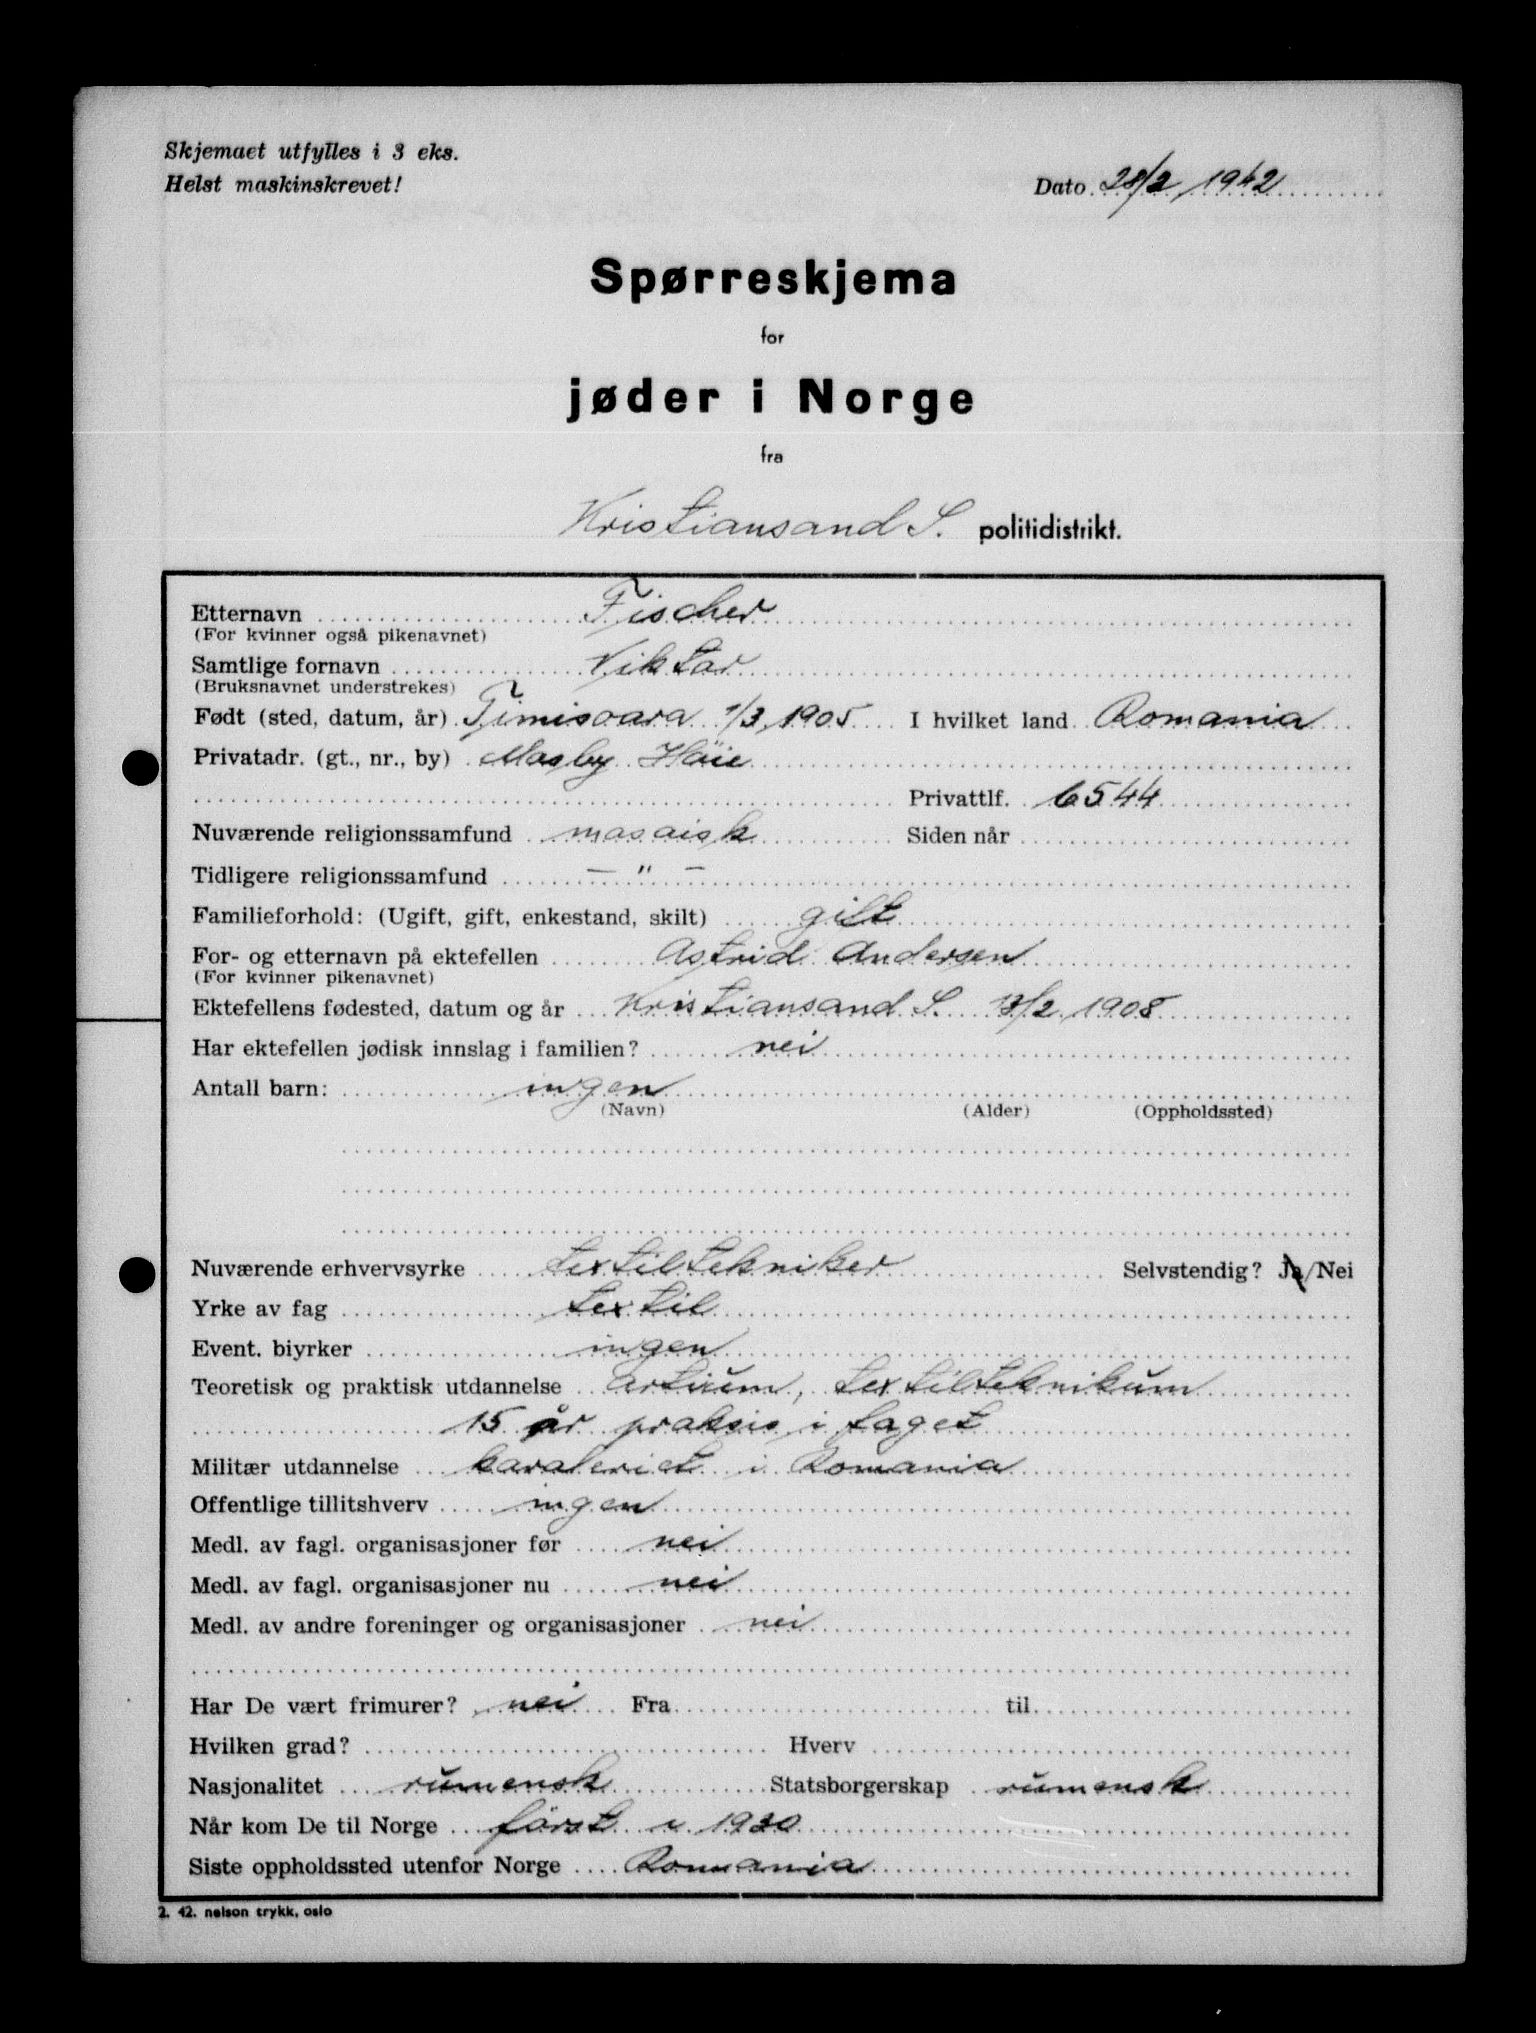 Skjemaet utfylles i 3 eks.
Helst maskinskrevet!
Dato 28/2 1942
Spørreskjema
for
jøder i Norge
fra
Kristiansand S. politidistrikt.
Etternavn Fischer
(For kvinner også pikenavnet)
Samtlige fornavn Viktor
(Bruksnavnet understrekes)
Født (sted, datum, år) Timisoara 1/3 1905 I hvilket land Romania
Privatadr. (gt., nr., by) Mosby Höie
Privattlf. 6544
Nuværende religionssamfund mosaisk Siden når
Tidligere religionssamfund — " —
Familieforhold: (Ugift, gift, enkestand, skilt) gift
For- og etternavn på ektefellen Astrid Andersen
(For kvinner pikenavnet)
Ektefellens fødested, datum og år Kristiansand S. /2 1908
Har ektefellen jødisk innslag i familien? nei
Antall barn: ingen
(Navn) (Alder) (Oppholdssted)
Nuværende erhvervsyrke textiltekniker Selvstendig? Ja/Nei
Yrke av fag textil
Event. biyrker ingen
Teoretisk og praktisk utdannelse Artium, textilteknikum
15 år praksis i faget
Militær utdannelse kavaleriet i Romania
Offentlige tillitshverv ingen
Medl. av fagl. organisasjoner før nei
Medl. av fagl. organisasjoner nu nei
Medl. av andre foreninger og organisasjoner nei
Har De vært frimurer? nei Fra til
Hvilken grad? Hverv
Nasjonalitet rumensk Statsborgerskap rumensk
Når kom De til Norge först i 1930
Siste oppholdssted utenfor Norge Romania
2. 42. nelson trykk, oslo